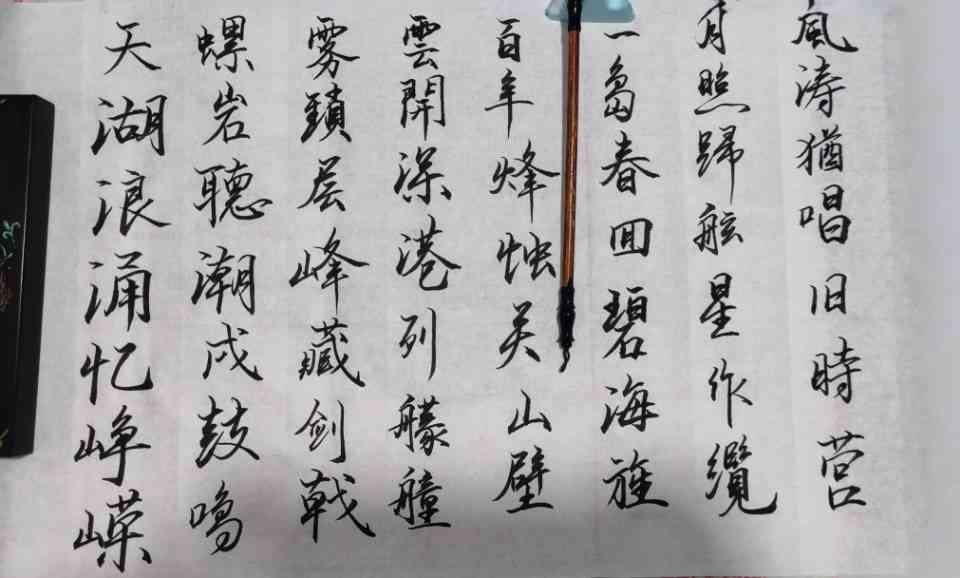 天湖浪涌忆峥嵘
螺岩聽潮戍鼓鳴
雾鎖层峰藏剑戟
雲開深港列艨艟
百年烽烛关山壁
一島春囬碧海旌
月照歸舷星作纜
風涛猶唱旧時营